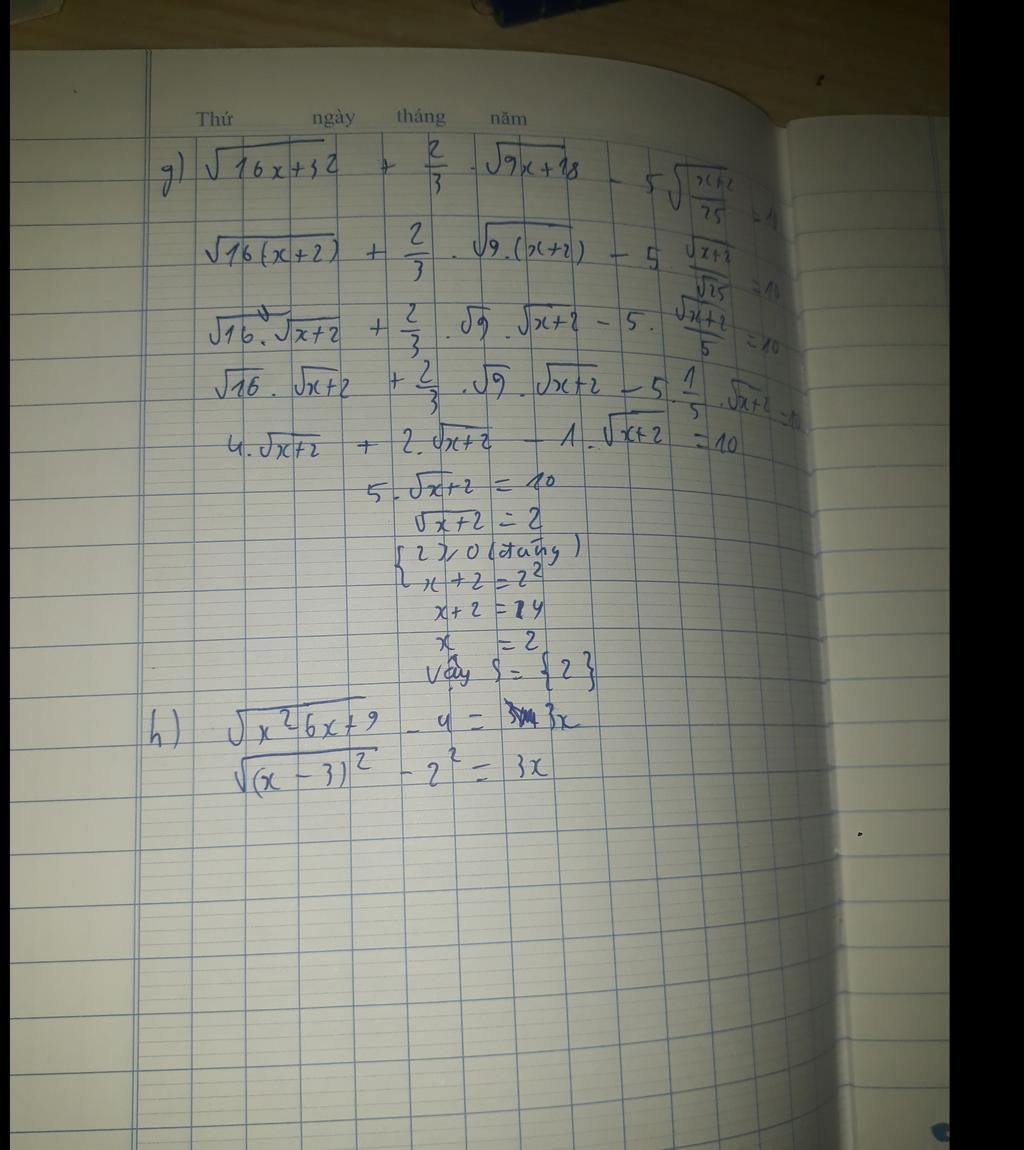 Thứ ngày tháng năm
g) √(16x+32) + 2/3 · √(9x+18) - 5√((x+2)/25) = 1
√(16(x+2)) + 2/3 . √(9.(x+2)) - 5 √(x+2)/√25 = 10
√16 . √(x+2) + 2/3 . √9 . √(x+2) - 5 . √(x+2)/5 = 10
√16 . √(x+2) + 2/3 . √9 . √(x+2) - 5 . 1/5 . √(x+2) = 10
4.√(x+2) + 2.√(x+2) - 1.√(x+2) = 10
5.√(x+2) = 10
√(x+2) = 2
{ 2 ⩾ 0 (đúng)
x + 2 = 2²
x+2 = 4
x = 2
Vậy S = {2}
h) √(x² 6x+9) - 4 = 3x
√((x-3)²) - 2² = 3x